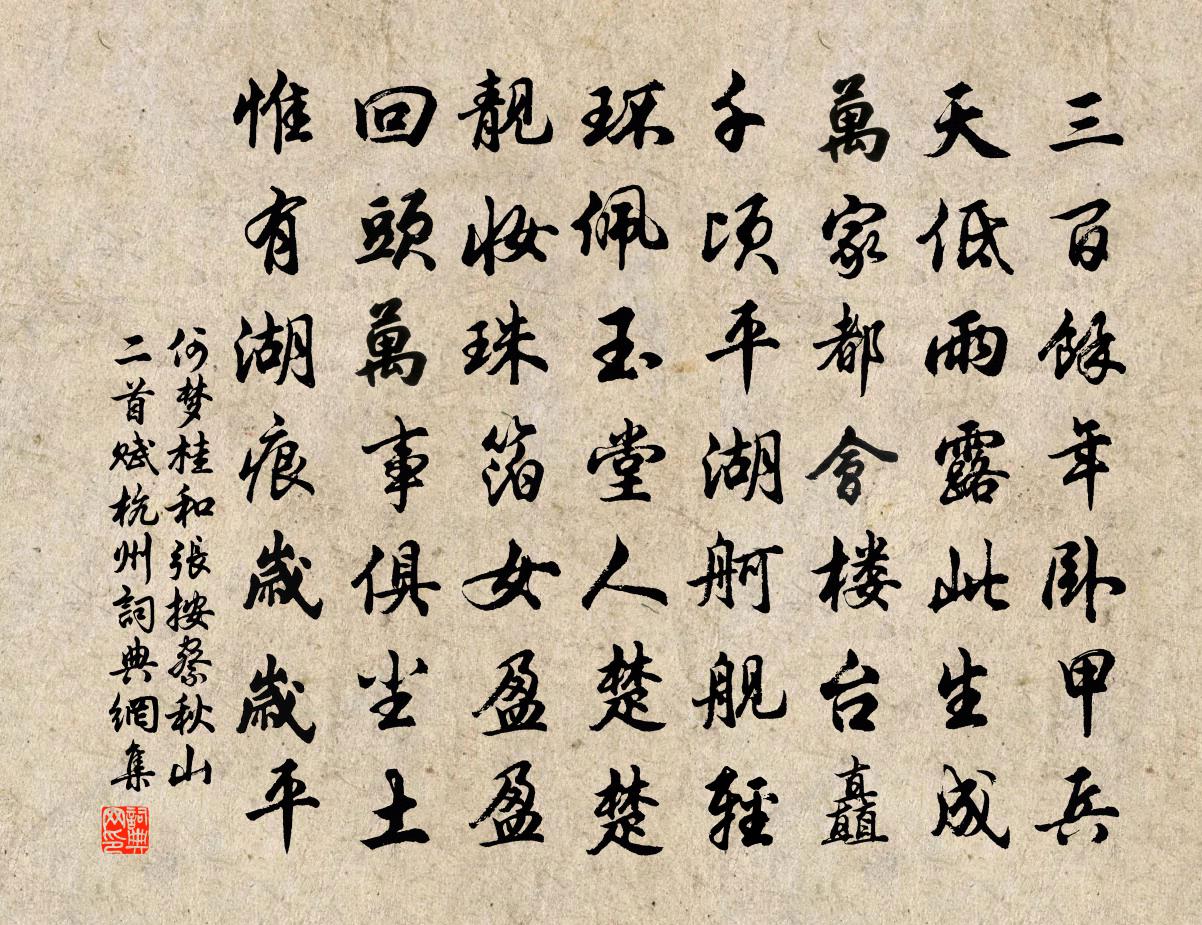 三百餘年卧甲兵
天低雨露此生成
萬家都會楼台矗
千頃平湖舸舰輕
环佩玉堂人楚楚
靓妆珠箔女盈盈
回頭萬事俱尘土
惟有湖痕歲歲平
何梦桂和張按察秋山
二首赋杭州詞典網集
詞典
网印